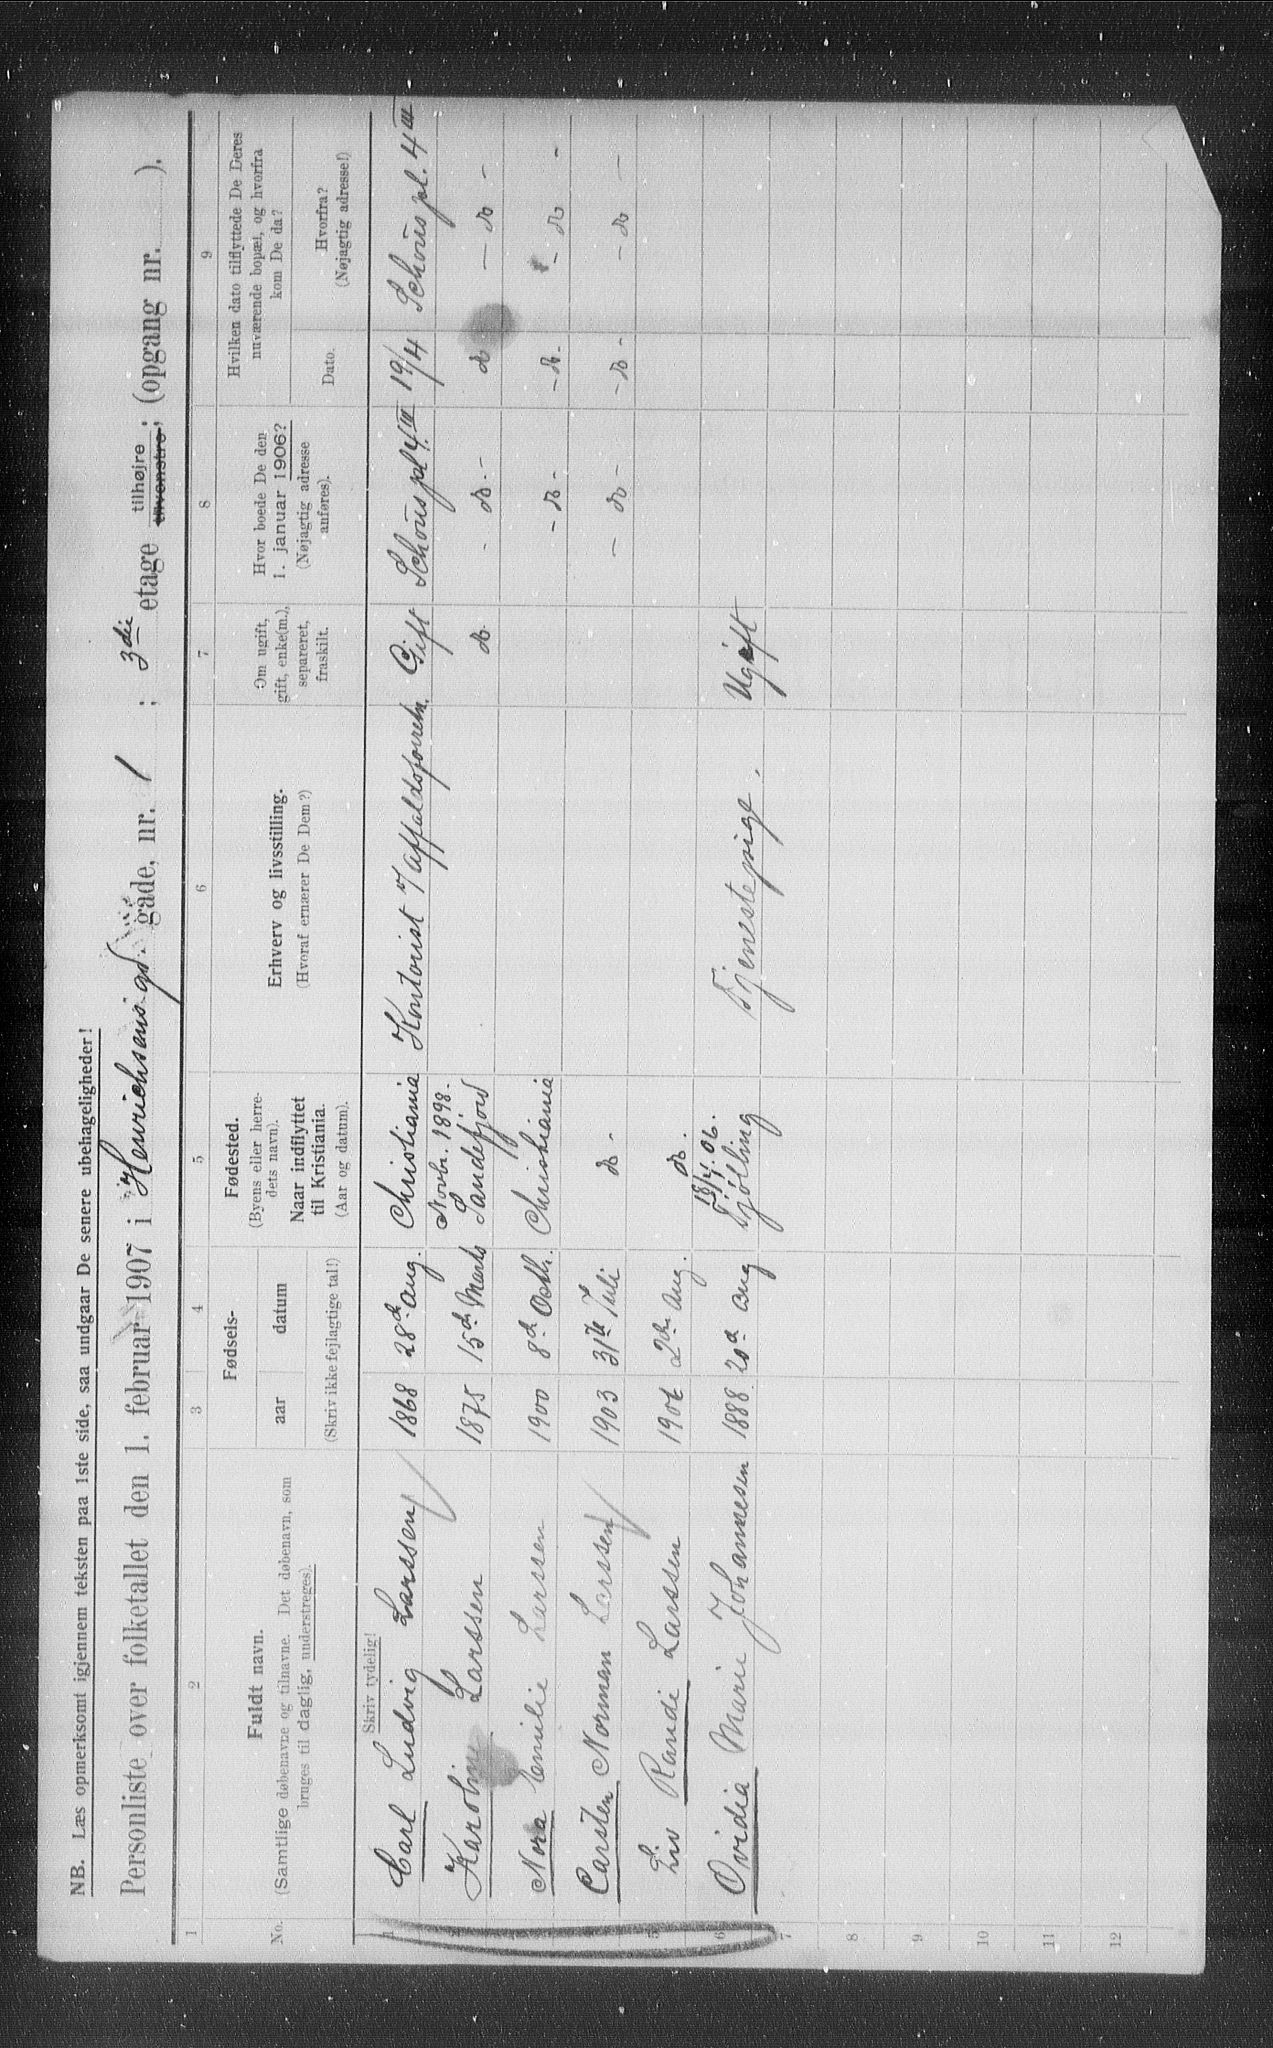 NB. Læs opmerksomt igjennem teksten paa 1ste side, saa undgaar De senere ubehageligheder!
Personliste over folketallet den 1. februar 1907 i Henrichsensgd. gade, nr. 1 ; 3die etage tilhøjre; tilvenstre; (opgang nr. ).
1 2 3 4 5 6 7 8 9
No.
Fuldt navn.
(Samtlige døbenavne og tilnavne. Det døbenavn, som
bruges til daglig, understreges).
Fødsels-
aar datum
(Skriv ikke fejlagtige tal!)
Fødested.
(Byens eller herre-
dets navn).
Naar indflyttet
til Kristiania.
(Aar og datum).
Erhverv og livsstilling.
(Hvoraf ernærer De Dem?)
Om ugift,
gift, enke(m.),
separeret,
fraskilt.
Hvor boede De den
1. januar 1906?
(Nøjagtig adresse
anføres).
Hvilken dato tilflyttede De Deres
nuværende bopæl, og hvorfra
kom De da?
Dato.
Hvorfra?
(Nøjagtig adresse!)
Skriv tydelig!
1 Carl Ludvig Larssen 1868 28de Aug. Christiania Kontorist i Affaldsforretn. Gift Schous pl 4 III 19/4 Schous pl. 4 III
Novbr. 1898.
2 Karoline Larssen 1875 15de Marts Sandefjord do. - do. - do - do -
3 Nora Emilie Larssen 1900 8de Octb. Christiania - do - - do. - - do -
4 Carsten Norman Larssen 1903 31te Juli do - - do - - do - - do -
5 Liv Randi Larssen 1906 2den Aug. do.
18/4. 06.
6 Ovidia Marie Johannesen 1888 20de Aug Tjølling Tjenestepige. Ugift
7
8
9
10
11
12